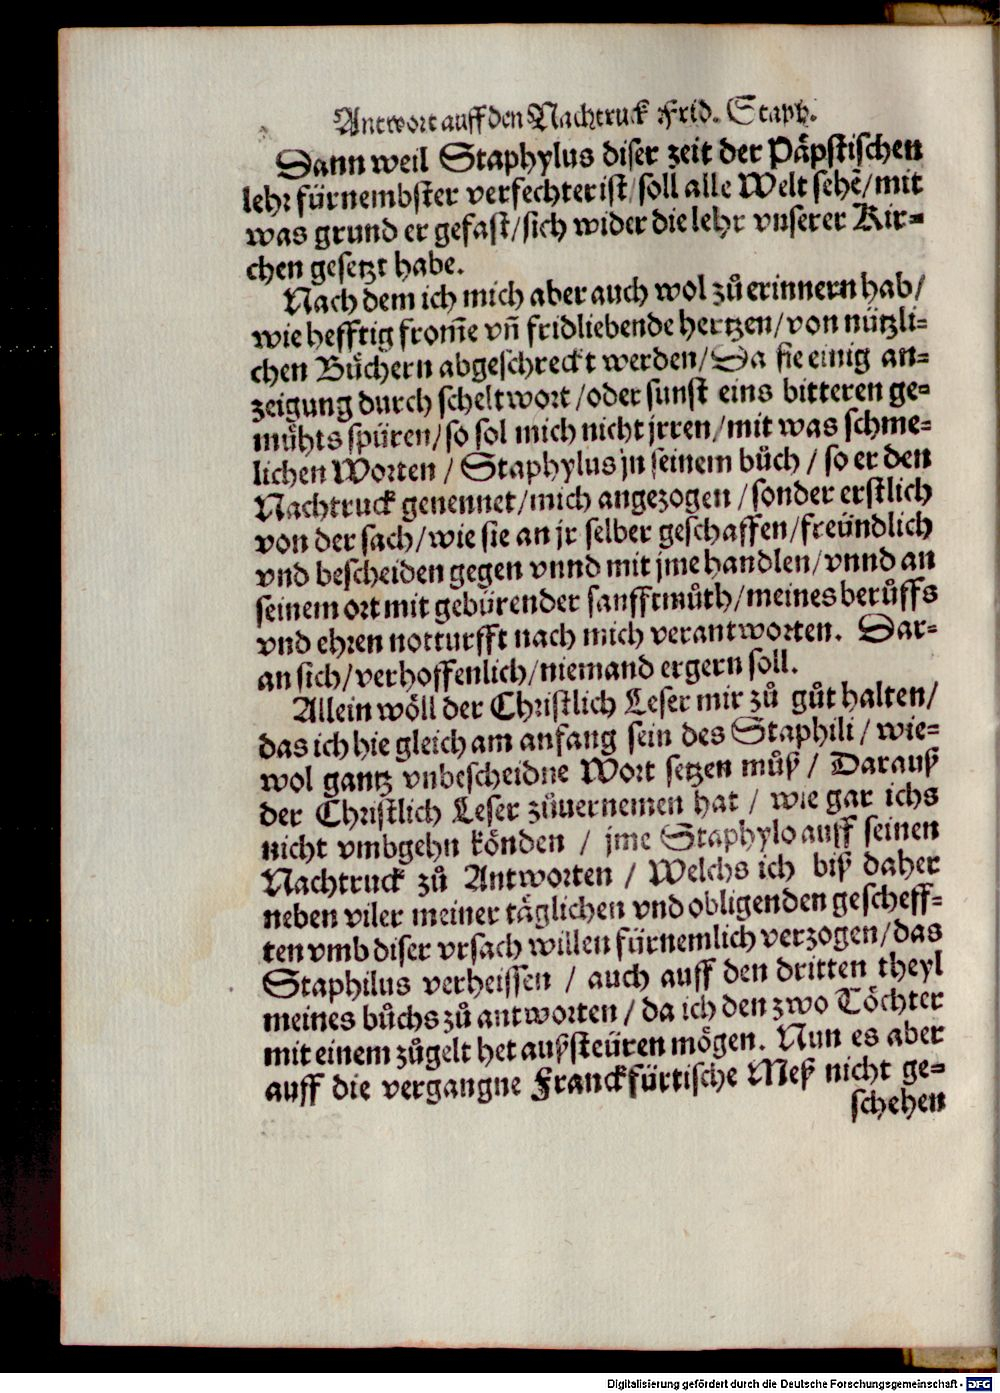 Antwort auff den Nachtruck Frid. Staph.
Dann weil Staphylus diser zeit der Päpstischen
lehr fürnembster verfechter ist/soll alle Welt sehẽ/mit
was grund er gefast/sich wider die lehr vnserer Kir-
chen gesetzt habe.
Nach dem ich mich aber auch wol zů erinnern hab/
wie hefftig from̃e vñ fridliebende hertzen/von nützli-
chen Bůchern abgeschreckt werden/Da sie einig an-
zeigung durch scheltwort/oder sunst eins bitteren ge-
můhts spüren/so sol mich nicht jrren/mit was schme-
lichen Worten / Staphylus jn seinem bůch / so er den
Nachtruck genennet/mich angezogen/sonder erstlich
von der sach/wie sie an jr selber geschaffen/freündlich
vnd bescheiden gegen vnnd mit jme handlen/vnnd an
seinem ort mit gebürender sanfftmůth/meines berůffs
vnd ehren notturfft nach mich verantworten. Dar-
an sich/verhoffenlich/niemand ergern soll.
Allein wöll der Christlich Leser mir zů gůt halten/
das ich hie gleich am anfang sein des Staphili / wie-
wol gantz vnbescheidne Wort setzen můß / Darauß
der Christlich Leser zůuernemen hat / wie gar ichs
nicht vmbgehn könden / jme Staphylo auff seinen
Nachtruck zů Antworten / Welchs ich biß daher
neben viler meiner täglichen vnd obligenden gescheff-
ten vmb diser vrsach willen fürnemlich verzogen/das
Staphilus verheissen / auch auff den dritten theyl
meines bůchs zů antworten / da ich den zwo Töchter
mit einem zůgelt het außsteüren mögen. Nun es aber
auff die vergangne Franckfürtische Meß nicht ge-
schehen
Digitalisierung gefördert durch die Deutsche Forschungsgemeinschaft - DFG